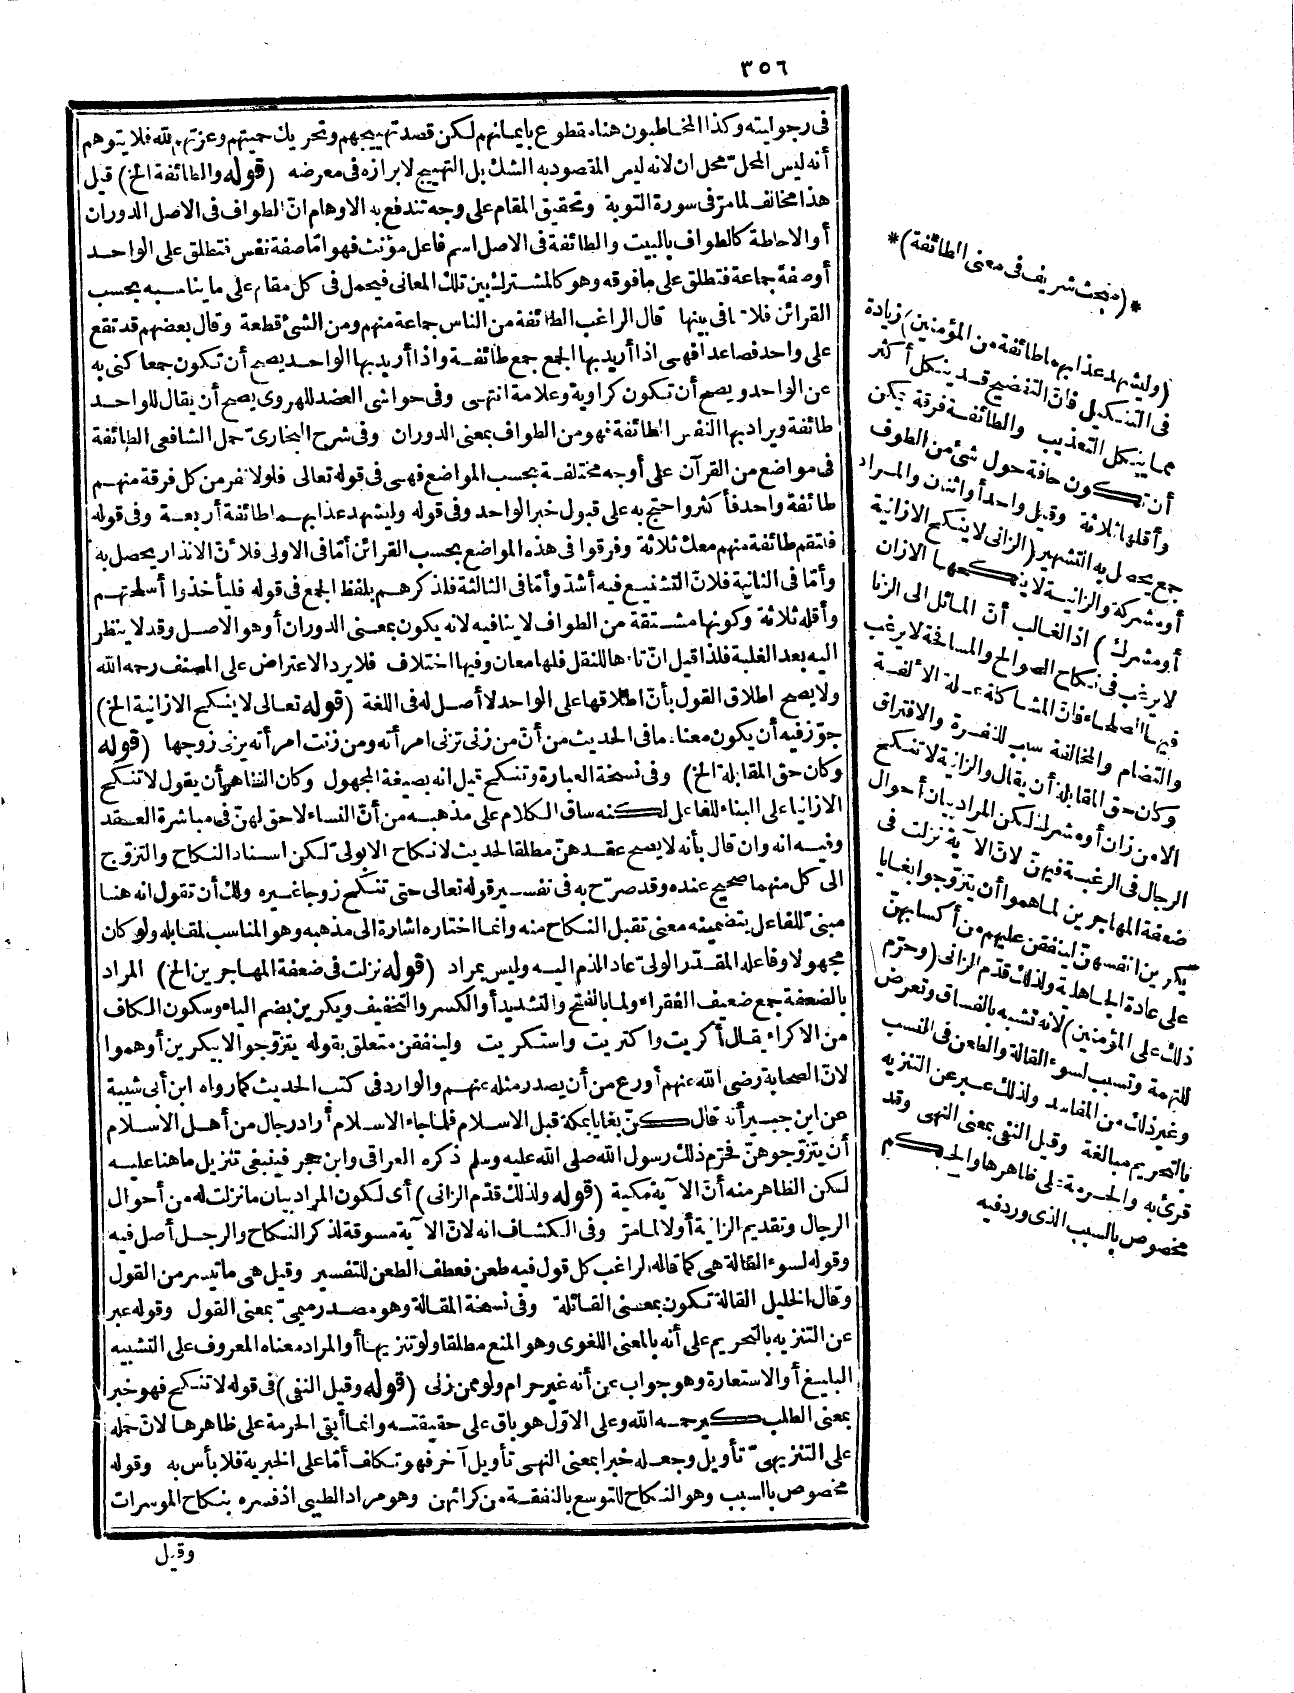 ٣٥٦
فى رجوليته وكذا المخاطبون هنا مقطوع بايمانهم لكن قصد تهييجهم وتحريك حميتهم وعزتهم لله فلا يتوهم
أنه ليس المحل محل ان لانه ليس المقصود به الشك بل التهييج لابرازه فى معرضه (قوله والطائفة الخ) قيل
هذا مخالف لما مرّ فى سورة التوبة وتحقيق المقام على وجه تندفع به الاوهام انّ الطواف فى الاصل الدوران
أو الاحاطة كالطواف بالبيت والطائفة فى الاصل اسم فاعل مؤنث فهو امّا صفة نفس فتطلق على الواحد
أو صفة جماعة فتطلق على ما فوقه وهو كالمشترك بين تلك المعانى فيحمل فى كل مقام على ما يناسبه بحسب
القرائن فلا تنافى بينها قال الراغب الطائفة من الناس جماعة منهم ومن الشئ قطعة وقال بعضهم قد تقع
على واحد فصاعدا فهى اذا أريد بها الجمع جمع طائف واذا أريد بها الواحد يصح أن تكون جمعا كنى به
عن الواحد ويصح أن تكون كراوية وعلامة انتهى وفى حواشى العضد للهروى يصح أن يقال للواحد
طائفة ويراد بها النفس الطائفة فهو من الطواف بمعنى الدوران وفى شرح البخارىّ حمل الشافعى الطائفة
فى مواضع من القرآن على أوجه مختلفة بحسب المواضع فهى فى قوله تعالى فلولا نفر من كل فرقة منهم
طائفة واحد فأكثر واحتج به على قبول خبر الواحد وفى قوله وليشهد عذابهما طائفة أربعة وفى قوله
فلتقم طائفة منهم معك ثلاثة وفرقوا فى هذه المواضع بحسب القرائن أمّا فى الاولى فلأنّ الانذار يحصل به
وأمّا فى الثانية فلانّ التشنيع فيه أشدّ وأمّا فى الثالثة فلذكرهم بلفظ الجمع فى قوله فليأخذوا أسلحتهم
وأقله ثلاثة وكونها مشتقة من الطواف لا ينافيه لانه يكون بمعنى الدوران أو هو الاصل وقد لا ينظر
اليه بعد الغلبة فلذا قيل انّ تاءها للنقل فلها معان وفيها اختلاف فلا يرد الاعتراض على المصنف رحمه الله
ولا يصح اطلاق القول بأنّ اطلاقها على الواحد لا أصل له فى اللغة (قوله تعالى لا ينكح الازانية الخ)
جوّز فيه أن يكون معناه ما فى الحديث من أنّ من زنى تزنى امرأته ومن زنت امرأته يزنى زوجها (قوله
وكان حق المقابلة الخ) وفى نسخة العبارة وتنكح قيل انه بصيغة المجهول وكان الظاهر أن يقول لا تنكح
الا زانيا على البناء للفاعل لكنه ساق الكلام على مذهبه من أنّ النساء لا حق لهنّ فى مباشرة العقد
وفيه انه وان قال بأنه لا يصح عقدهنّ مطلقا لحديث لا نكاح الا بولىّ لكن اسناد النكاح والتزوّج
الى كل منهما صحيح عنده وقد صرّح به فى تفسير قوله تعالى حتى تنكح زوجا غيره ولك أن تقول انه هنا
مبنىّ للفاعل بتضمينه معنى تقبل النكاح منه وانما اختاره اشارة الى مذهبه وهو المناسب لمقابله ولو كان
مجهولا وفاعله المقدّر الولىّ عاد الذم اليه وليس بمراد (قوله نزلت فى ضعفة المهاجرين الخ) المراد
بالضعفة جمع ضعيف الفقراء ولما بالفتح والتشديد أو الكسر والتخفيف ويكرين بضم الياء وسكون الكاف
من الاكراء يقال أكريت واكتريت واستكريت ولينفقن متعلق بقوله يتزوّجوا لا بيكرين أو هموا
لانّ الصحابة رضى الله عنهم أورع من أن يصدر مثله عنهم والوارد فى كتب الحديث كما رواه ابن أبى شيبة
عن ابن جبير أنه قال كنّ بغايا بمكة قبل الاسلام فلما جاء الاسلام أراد رجال من أهل الاسلام
أن يتزوّجوهنّ فحرّم ذلك رسول الله صلى الله عليه وسلم ذكره العراقى وابن حجر فينبغى تنزيل ما هنا عليه
لكن الظاهر منه أنّ الآية مكية (قوله ولذلك قدّم الزانى) أى لكون المراد بيان ما نزلت له من أحوال
الرجال وتقديم الزانية أوّلا لما مرّ وفى الكشاف انه لانّ الآية مسوقة لذكر النكاح والرجل أصل فيه
وقوله لسوء القالة هى كما قاله الراغب كل قول فيه طعن فعطف الطعن للتفسير وقيل هى ما تيسر من القول
وقال الخليل القالة تكون بمعنى القائلة وفى نسخة المقالة وهو مصدر ميمىّ بمعنى القول وقوله عبر
عن التنزيه بالتحريم على أنه بالمعنى اللغوى وهو المنع مطلقا ولو تنزيها أو المراد معناه المعروف على التشبيه
البليغ أو الاستعارة وهو جواب عن أنه غير حرام ولو ممن زنى (قوله وقيل النفى) فى قوله لا تنكح فهو خبر
بمعنى الطلب كيرحمه الله وعلى الاوّل هو باق على حقيقته وانما أبقى الحرمة على ظاهرها لانّ حمله
على التنزيهىّ تأويل وجعله خبرا بمعنى النهى تأويل آخر فهو تكاف أمّا على الخبرية فلا بأس به وقوله
مخصوص بالسبب وهو النكاح للتوسع بالنفقة من كرائهن وهو مراد الطيبى اذ فسره بنكاح الموسرات
وقيل
*(مبحث شريف فى معنى الطائفة)*
(وليشهد عذابهما طائفة من المؤمنين) زيادة
فى التنكيل فانّ التفضيح قد ينكل أكثر
مما ينكل التعذيب والطائفة فرقة يمكن
أن تكون حافة حول شئ من الطوف
وأقلها ثلاثة وقيل واحد أو اثنان والمراد
جمع يحصل به التشهير (الزانى لا ينكح الا زانية
أو مشركة والزانية لا ينكحها الا زان
أو مشرك) اذ الغالب أنّ المائل الى الزنا
لا يرغب فى نكاح الصوالح والمسافحة لا يرغب
فيها الصلحاء فانّ المشاكلة علة الألفة
والتضام والمخالفة سبب للنفرة والافتراق
وكان حق المقابلة أن يقال والزانية لا تنكح
الا من زان أو مشرك لكن المراد بيان أحوال
الرجال فى الرغبة فيهنّ لانّ الآية نزلت فى
ضعفة المهاجرين لما هموا أن يتزوّجوا بغايا
يكرين أنفسهنّ لينفقن عليهم من أكسابهنّ
على عادة الجاهلية ولذلك قدّم الزانى (وحرّم
ذلك على المؤمنين) لانه تشبه بالفساق وتعرض
للتهمة وتسبب لسوء القالة والطعن فى النسب
وغير ذلك من المفاسد ولذلك عبر عن التنزيه
بالتحريم مبالغة وقيل النفى بمعنى النهى وقد
قرئ به والحرمة على ظاهرها والحكم
مخصوص بالسبب الذى ورد فيه